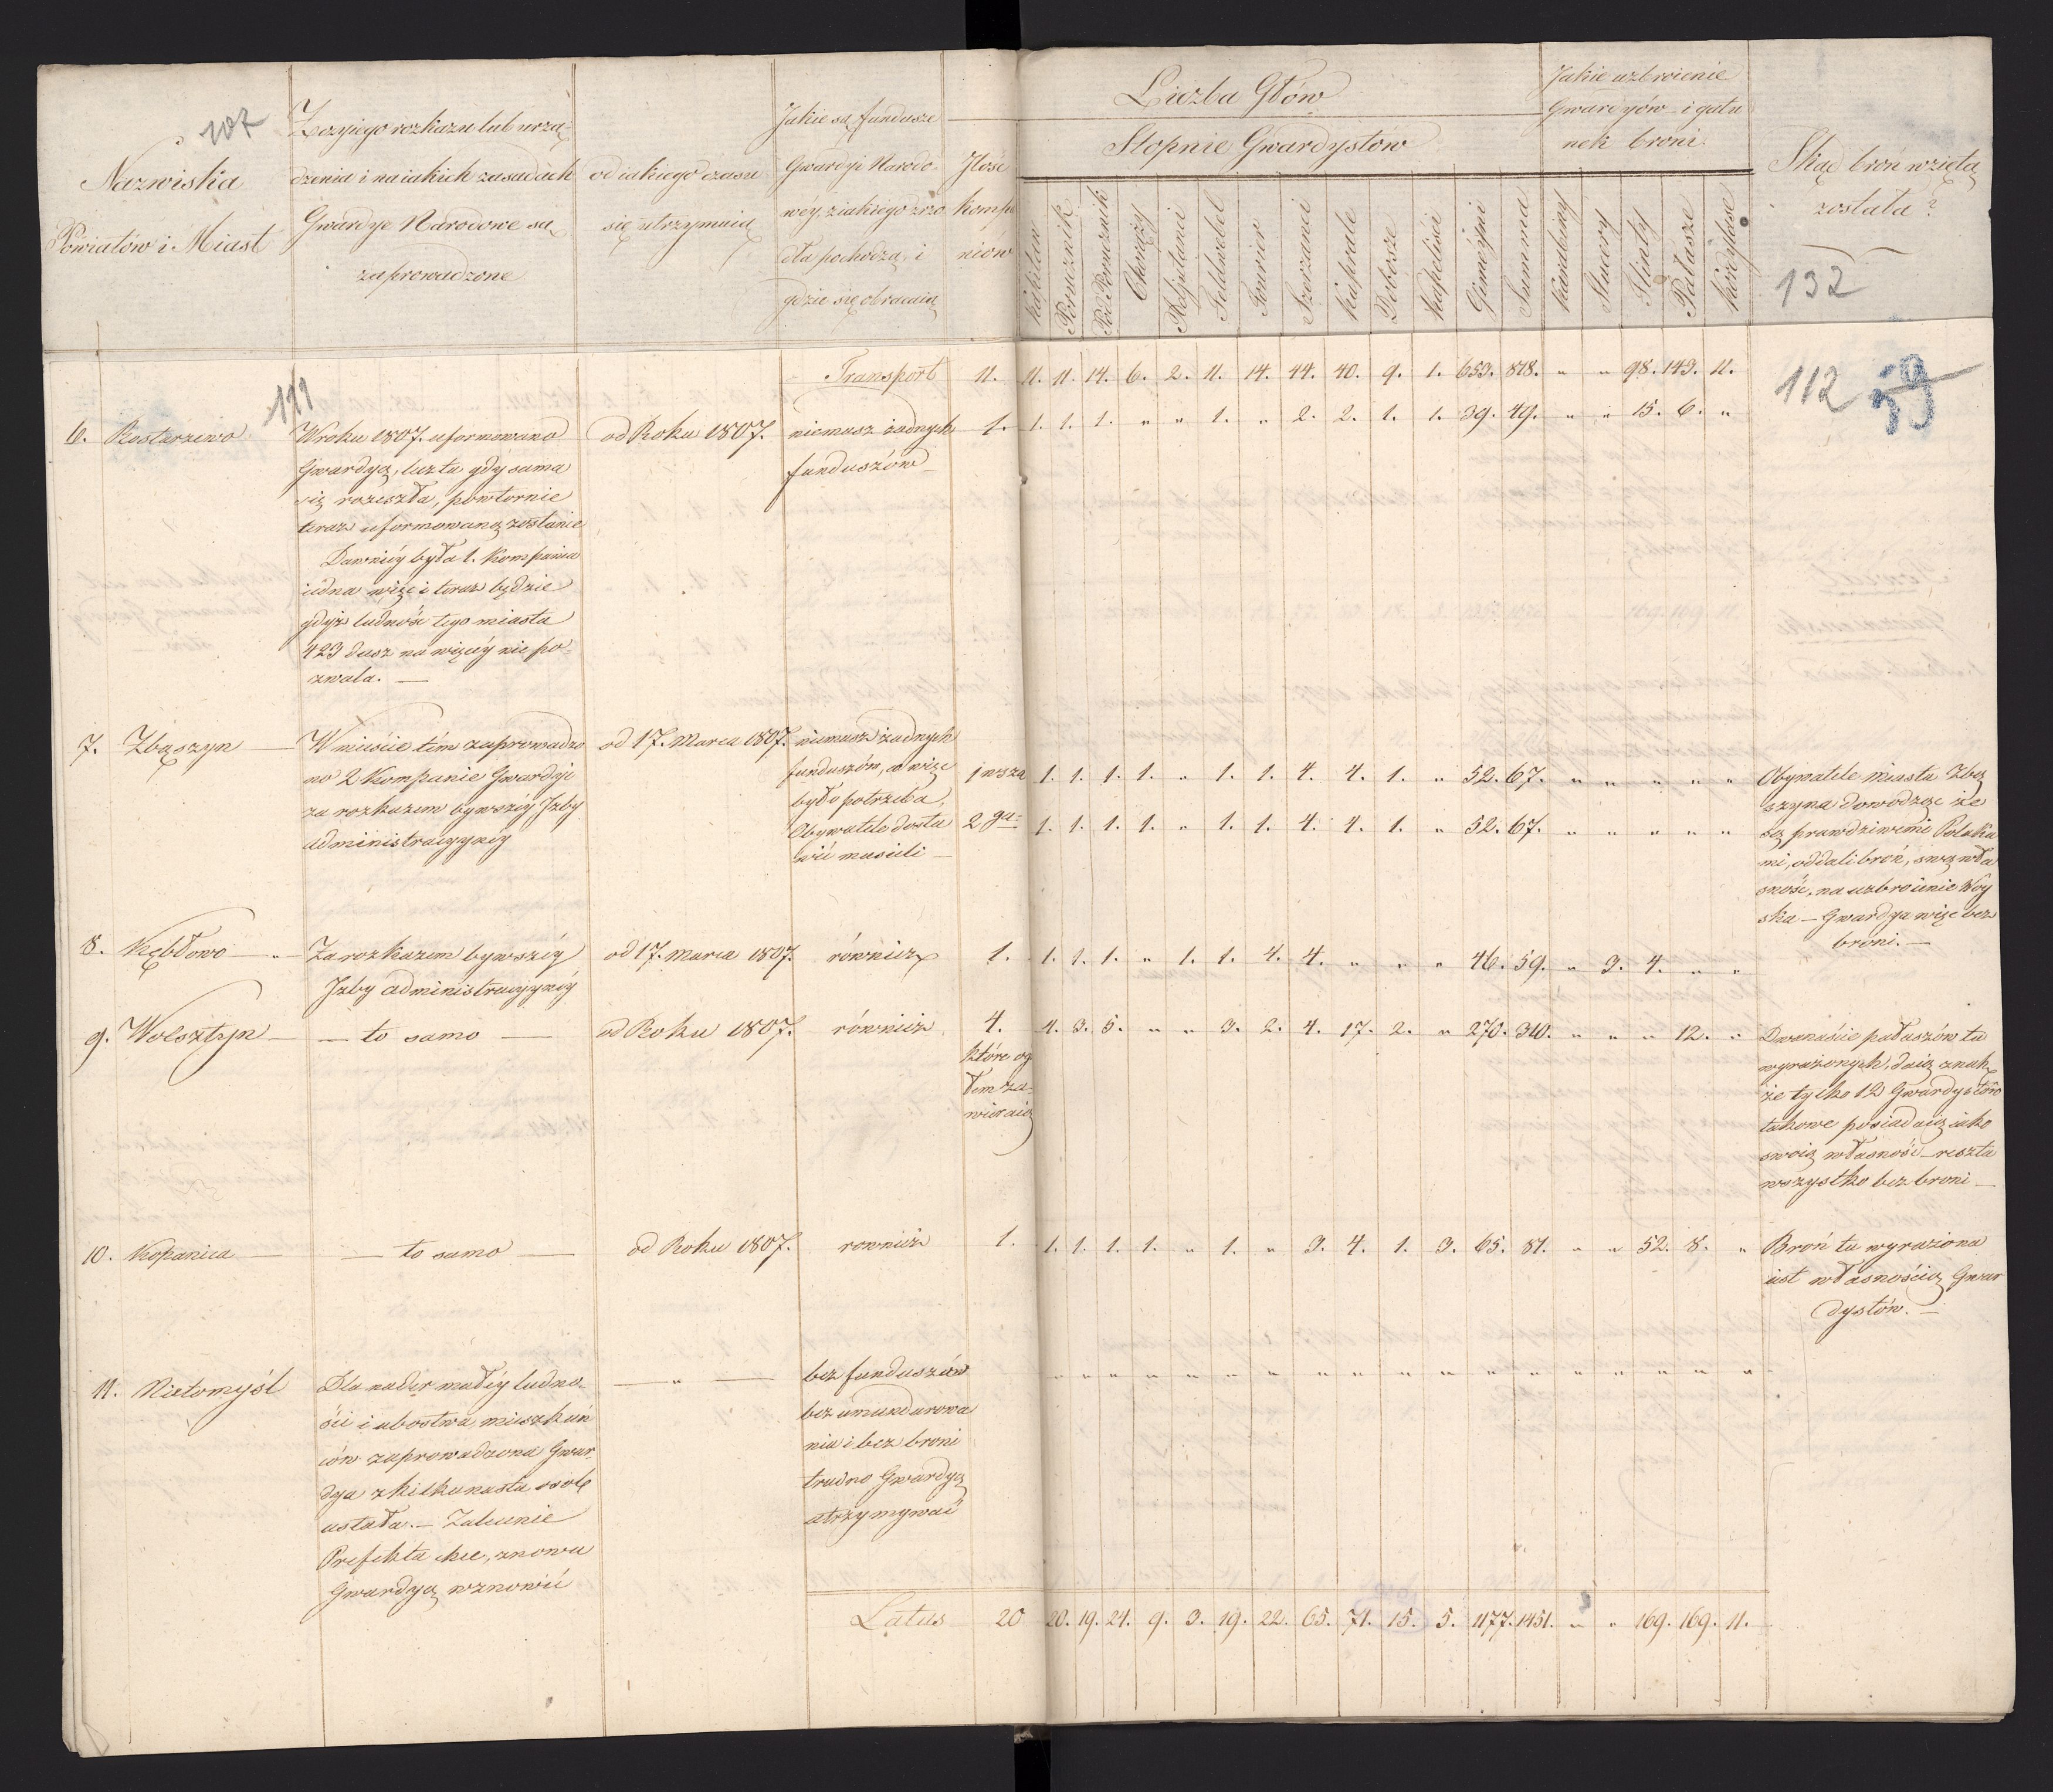 107
Nazwiska
Powiatów i Miast
Z czyiego rozkazu lub urzą-
dzenia i na iakich zasadach
Gwardye Narodowe są
zaprowadzone
od iakiego czasu
się utrzymuią
Jakie są fundusze
Gwardyi Narodo-
wéy, z iakiego źrzo
dła pochodzą, i
gdzie się obracaią
Jlość
kompa
niów
Liczba Głów
Stopnie Gwardystów
Kapitan
Porucznik
Pod Porucznik
Chorąży
Adjutanci
Feldwebel
Fourier
Szerzanci
Kaprale
Dobosze
Kapeliści
Gimeyni
Summa
Jakie uzbroienie
Gwardyów i gatu
nek broni
Karabiny
Stucery
Flinty
Pałasze
Kordylase
Skąd broń wzięta
została?
132
Transport 11. 11. 11. 14. 6. 2. 11. 14. 44. 40. 9. 1. 653. 818. " " 98. 143. 11.
112 59
111
6. Rostarzewo
W roku 1807. uformowano
Gwardyą, lecz ta gdy sama
się rozeszła, powtornie
teraz uformowaną zostanie
Dawniéy była 1. Kompania
iedna więc i teraz będzie
gdyż ludność tego miasta
423 dusz na więcéy nie po-
zwala. —
od Roku 1807.
niemasz żadnych
funduszów
1. 1. 1. 1. " " 1. " 2. 2. 1. 1. 39. 49. " " 15. 6. "
7. Zbąszyn
W mieście tém zaprowadzo
no 2 Kompanie Gwardyi
za rozkazem bywszéy Jzby
administracyynéy
od 17. Marca 1807.
niemasz żadnych
funduszów, co więc
było potrzeba,
Obywatele dosta
wić musieli —
1 wsza 1. 1. 1. 1. " 1. 1. 4. 4. 1. " 52. 67. " " " " "
2 ga 1. 1. 1. 1. " 1. 1. 4. 4. 1. " 52. 67. " " " " "
Obywatele miasta Zbą
szyna dowodząc że
są prawdziwemi Polaka
mi, oddali broń, swą wła
sność, na uzbroienie Woy
ska — Gwardya więc bez
broni. —
8. Kębłowo — "
Za rozkazem bywszéy
Jzby administracyynéy
od 17. Marca 1807.
równiez
1. 1. 1. 1. " 1. 1. 4. 4. " " " 46. 59. " 3. 4. " "
9. Wolsztyn —
— to samo —
od Roku 1807.
równiez
4.
które og
ołem za-
wieraią
4. 3. 5. " " 3. 2. 4. 17. 2. " 270. 310. " " " 12. "
Dwanaście pałaszów tu
wyrażonych, daią znak
że tylko 12 Gwardystów
takowe posiadaią iako
swoią własność — reszta
wszystko bez broni —
10. Kopanica —
— to samo —
od Roku 1807.
rowniez
1. 1. 1. 1. 1. " 1. " 3. 4. 1. 3. 65. 81. " " 52. 8. "
Broń tu wyrażona
iest własnością Gwar
dystów. —
11. Nietomyśl
Dla nader małéy ludno-
ści i ubostwa mieszkań
ców zaprowadzona Gwar-
dya z kilkunastu osób
ustała. — Zalecenie
Prefekta chce, znowu
Gwardyą wznowić
— " —
bez funduszów
bez umundurowa
nia i bez broni
trudno Gwardyą
utrzymywać
" " " " " " " " " " " " " " " " " "
Latus 20 20. 19. 24. 9. 3. 19. 22. 65. 71. 15. 5. 1177. 1451. " " 169. 169. 11.